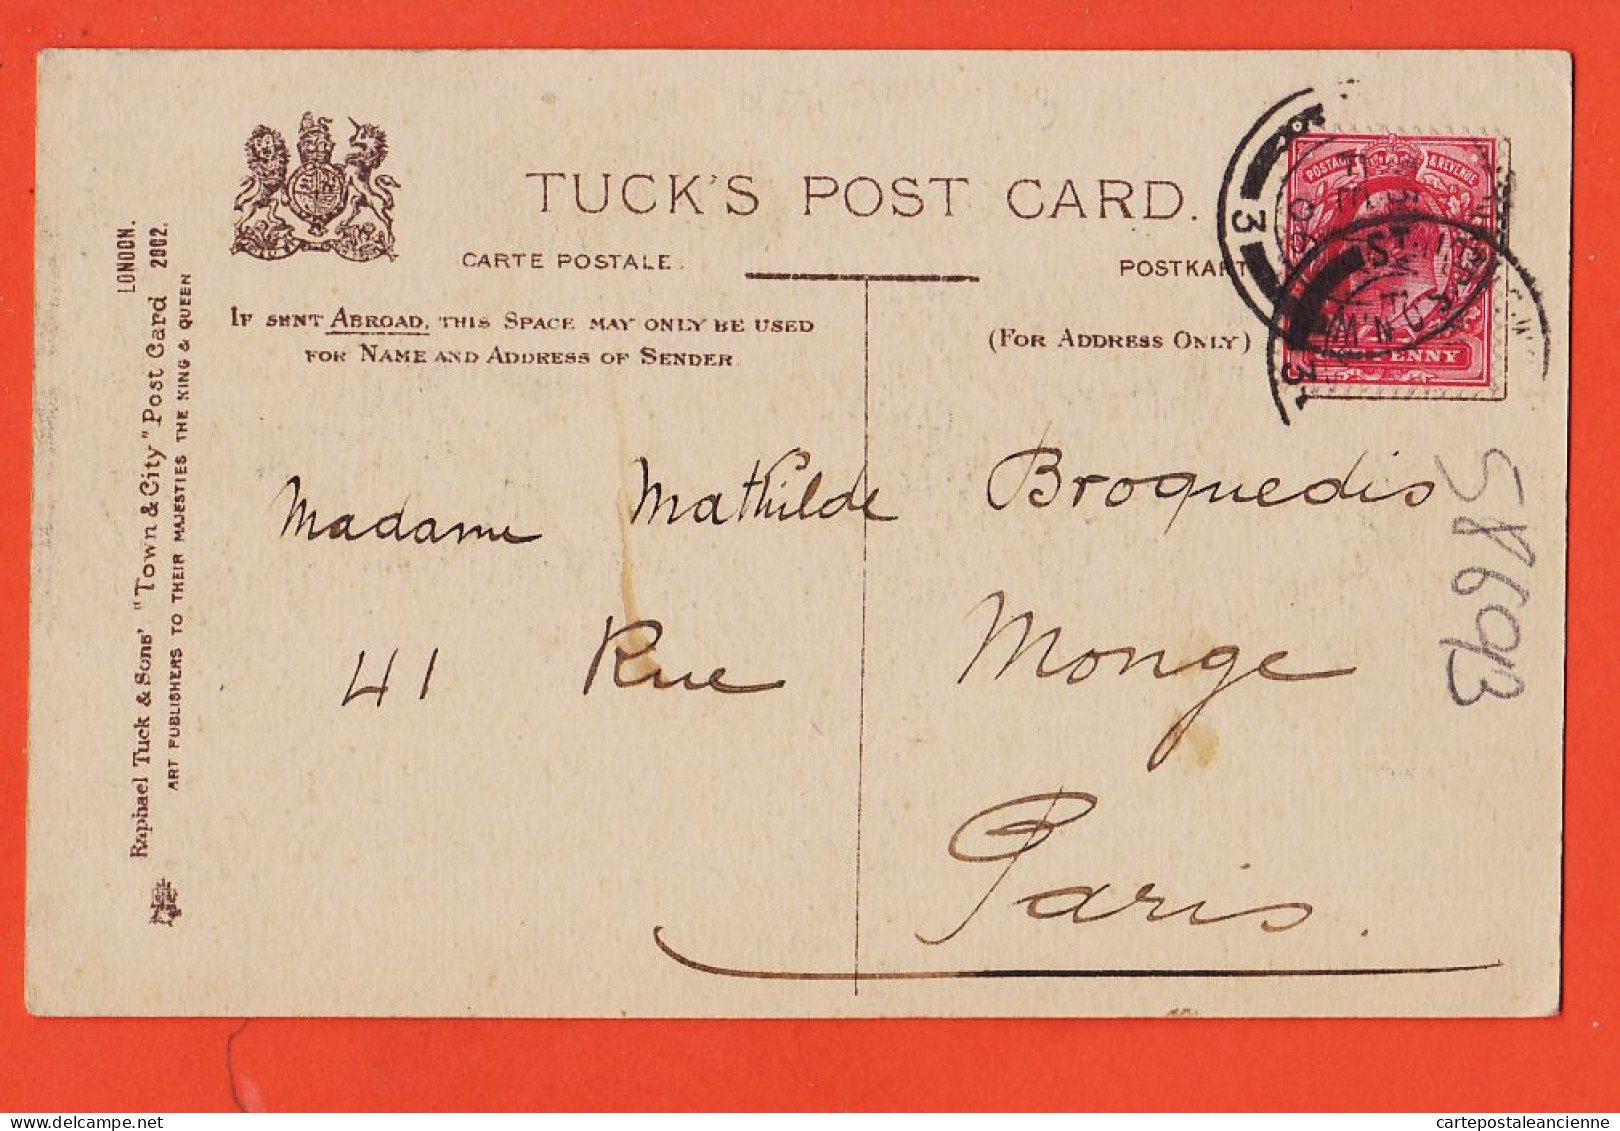 TUCK'S POST CARD.
CARTE POSTALE.
POSTKART
IF SENT ABROAD, THIS SPACE MAY ONLY BE USED
FOR NAME AND ADDRESS OF SENDER
(FOR ADDRESS ONLY)
POSTAGE & REVENUE
PENNY
3
3
Madame Mathilde Broquedis
41 Rue Monge
Paris.
LONDON.
Raphael Tuck & Sons' "Town & City" Post Card 2002.
ART PUBLISHERS TO THEIR MAJESTIES THE KING & QUEEN
cartepostaleancienne